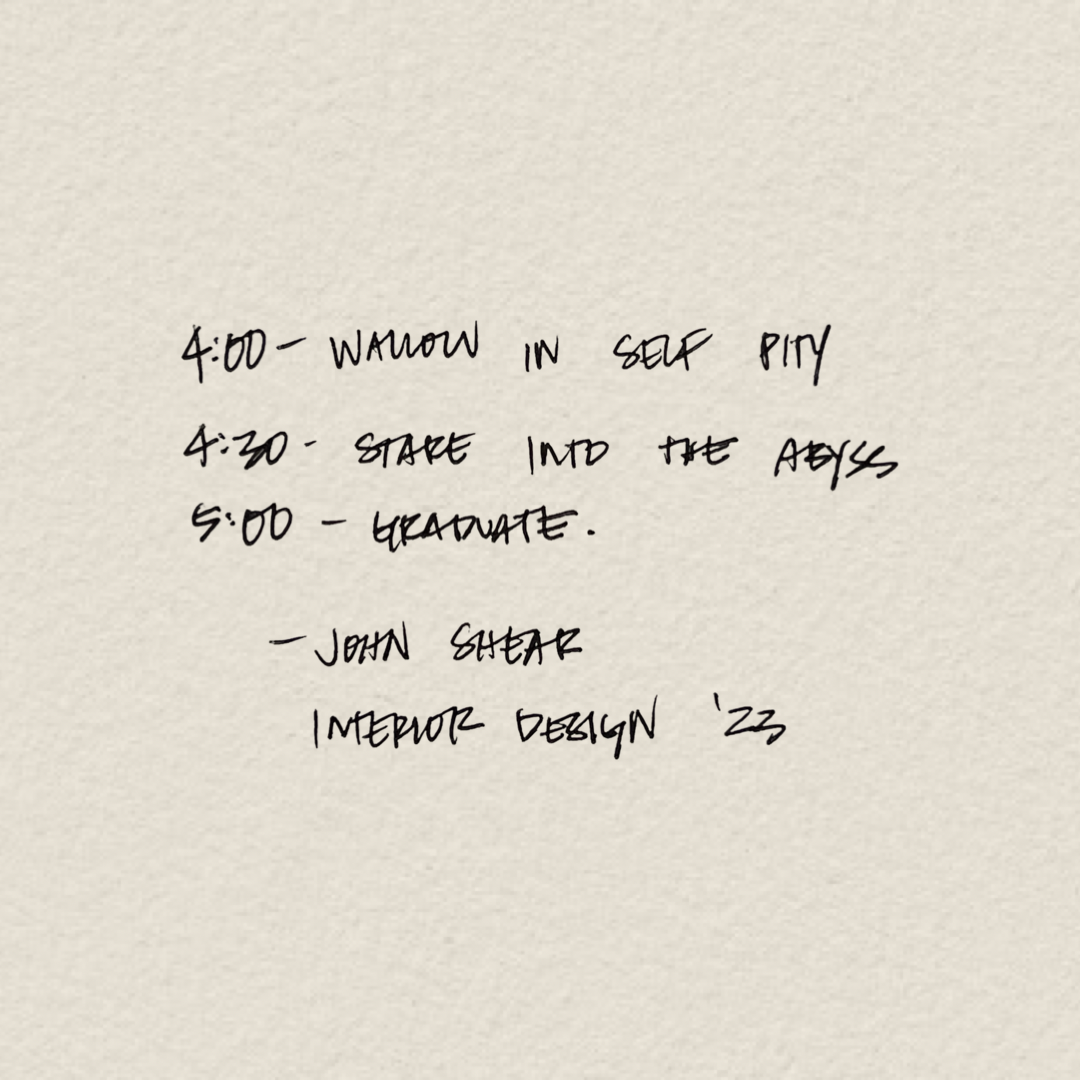 4:00 - WALLOW IN SELF PITY
4:30 - STARE INTO THE ABYSS
5:00 - GRADUATE.
- JOHN SHEAR
INTERIOR DESIGN '23